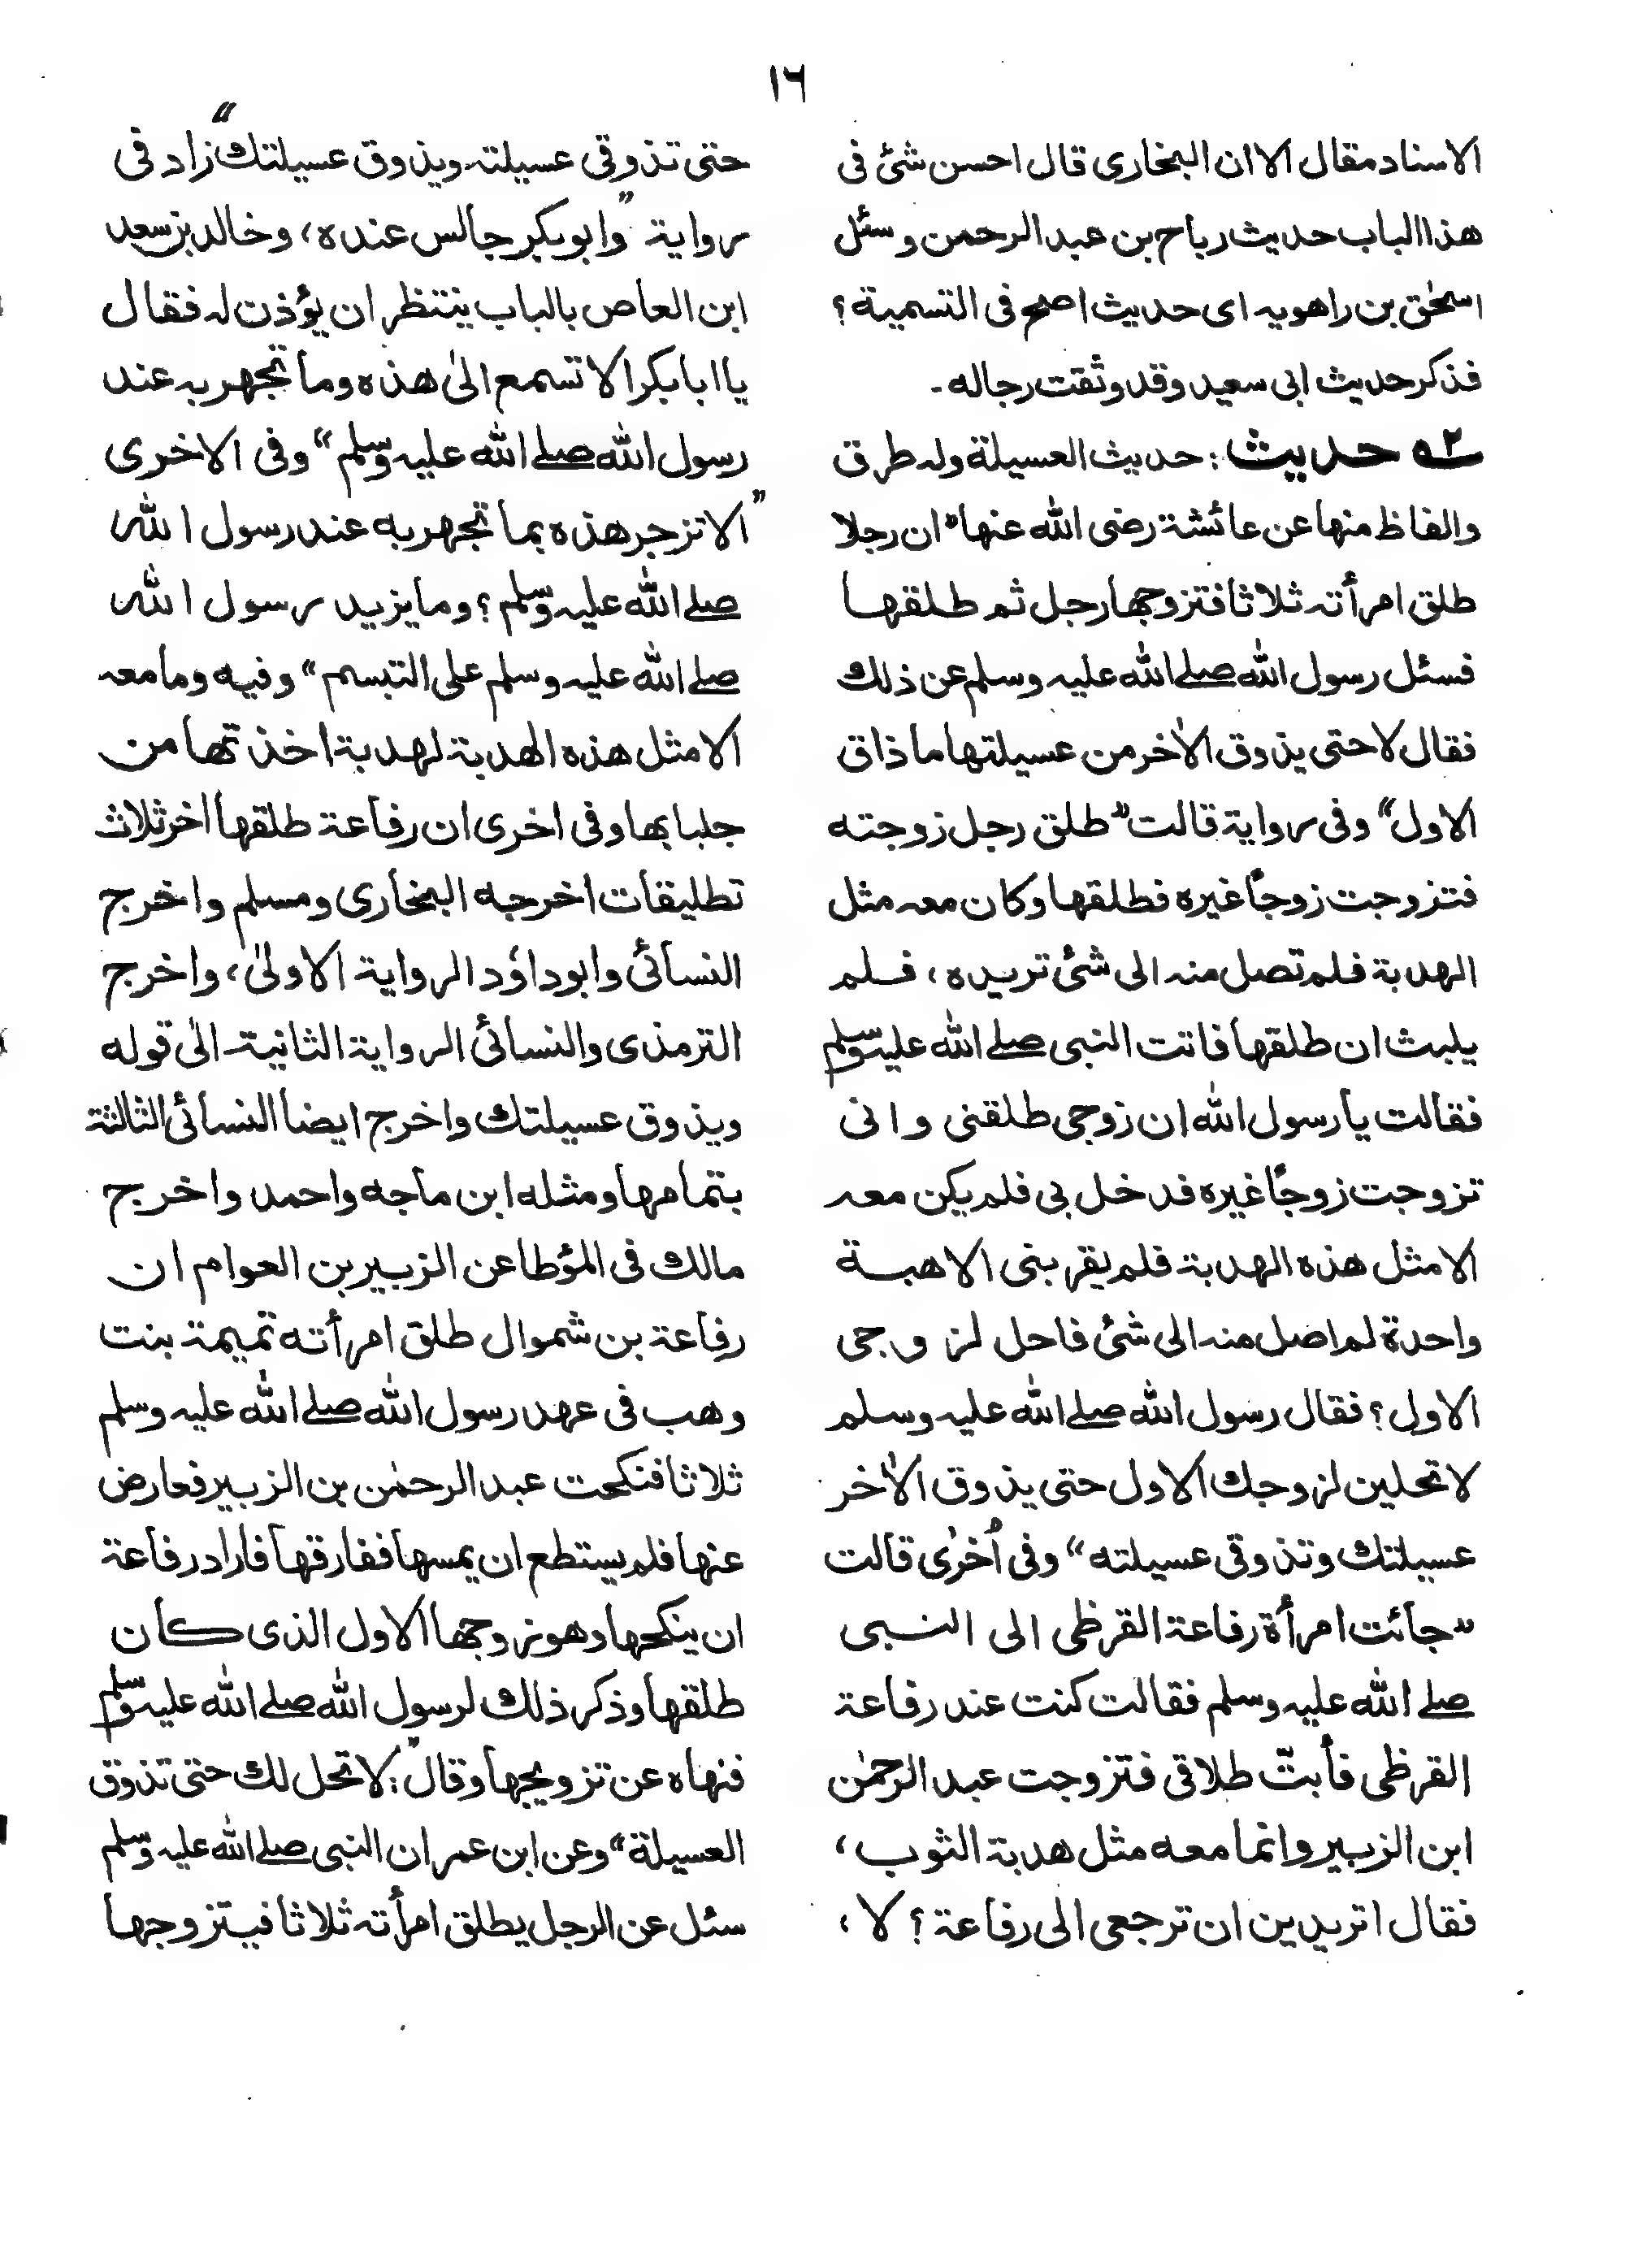 ١٦
الاسناد مقال الا ان البخاری قال احسن شئ فی
هذا الباب حدیث رباح بن عبد الرحمن وسئل
اسحٰق بن راهویہ ای حدیث اصح فی التسمیة ؟
فذکر حدیث ابی سعید وقد وثقت رجاله ۔
٢ــه حدیث : حدیث العسیلة ولہ طرق
والفاظ منها عن عائشة رضی الله عنها "ان رجلا
طلق امرأتہ ثلاثا فتزوجها رجل ثم طلقها
فسئل رسول الله صلے الله علیہ وسلم عن ذلك
فقال لا حتی یذوق الاٰخر من عسیلتها ما ذاق
الاول" وفی روایة قالت "طلق رجل زوجته
فتزوجت زوجًا غیره فطلقها وکان معہ مثل
الهدبة فلم تصل منہ الی شئ تریده ، فلم
یلبث ان طلقها فاتت النبی صلے الله علیہ وسلم
فقالت یا رسول الله ان زوجی طلقنی وانی
تزوجت زوجًا غیره فدخل بی فلم یکن معہ
الا مثل هذه الهدبة فلم یقربنی الا هبة
واحدة لم اصل منہ الی شئ فاحل لزوجی
الاول ؟ فقال رسول الله صلے الله علیہ وسلم
لا تحلین لزوجك الاول حتی یذوق الاٰخر
عسیلتك وتذوقی عسیلته" وفی اُخرٰی قالت
"جائت امرأة رفاعة القرظی الی النبی
صلے الله علیہ وسلم فقالت کنت عند رفاعة
القرظی فأبتّ طلاقی فتزوجت عبد الرحمٰن
ابن الزبیر وانما معه مثل هدبة الثوب ،
فقال اتریدین ان ترجعی الی رفاعة ؟ لا ،
حتی تذوقی عسیلتہ ویذوق عسیلتك" زاد فی
روایة "وابوبکر جالس عنده ، وخالد بن سعید
ابن العاص بالباب ینتظر ان یؤذن لہ فقال
یا ابا بکر الا تسمع الیٰ هذه وما تجهر بہ عند
رسول الله صلے الله علیہ وسلم" وفی الاخری
"الا تزجر هذه بما تجهر به عند رسول الله
صلے الله علیہ وسلم ؟ وما یزید رسول الله
صلے الله علیہ وسلم علی التبسم" وفیه وما معہ
الا مثل هذه الهدبة لهدبة اخذتها من
جلبابها وفی اخری ان رفاعة طلقها اٰخر ثلاث
تطلیقات اخرجه البخاری ومسلم واخرج
النسائی وابو داوٗد الروایة الاولیٰ ، واخرج
الترمذی والنسائی الروایة الثانیة الیٰ قوله
ویذوق عسیلتك واخرج ایضا النسائی الثالثة
بتمامها ومثله ابن ماجه واحمد واخرج
مالك فی المؤطا عن الزبیر بن العوام ان
رفاعة بن شموال طلق امرأته تمیمة بنت
وهب فی عهد رسول الله صلے الله علیہ وسلم
ثلاثا فنکحت عبد الرحمٰن بن الزبیر فعارض
عنها فلم یستطع ان یمسها ففارقها فاراد رفاعة
ان ینکحها وهو زوجها الاول الذی کان
طلقها وذکر ذلك لرسول الله صلے الله علیہ وسلم
فنهاه عن تزویجها وقال :"لا تحل لك حتی تذوق
العسیلة" وعن ابن عمر ان النبی صلے الله علیہ وسلم
سئل عن الرجل یطلق امرأتہ ثلاثا فیتزوجها